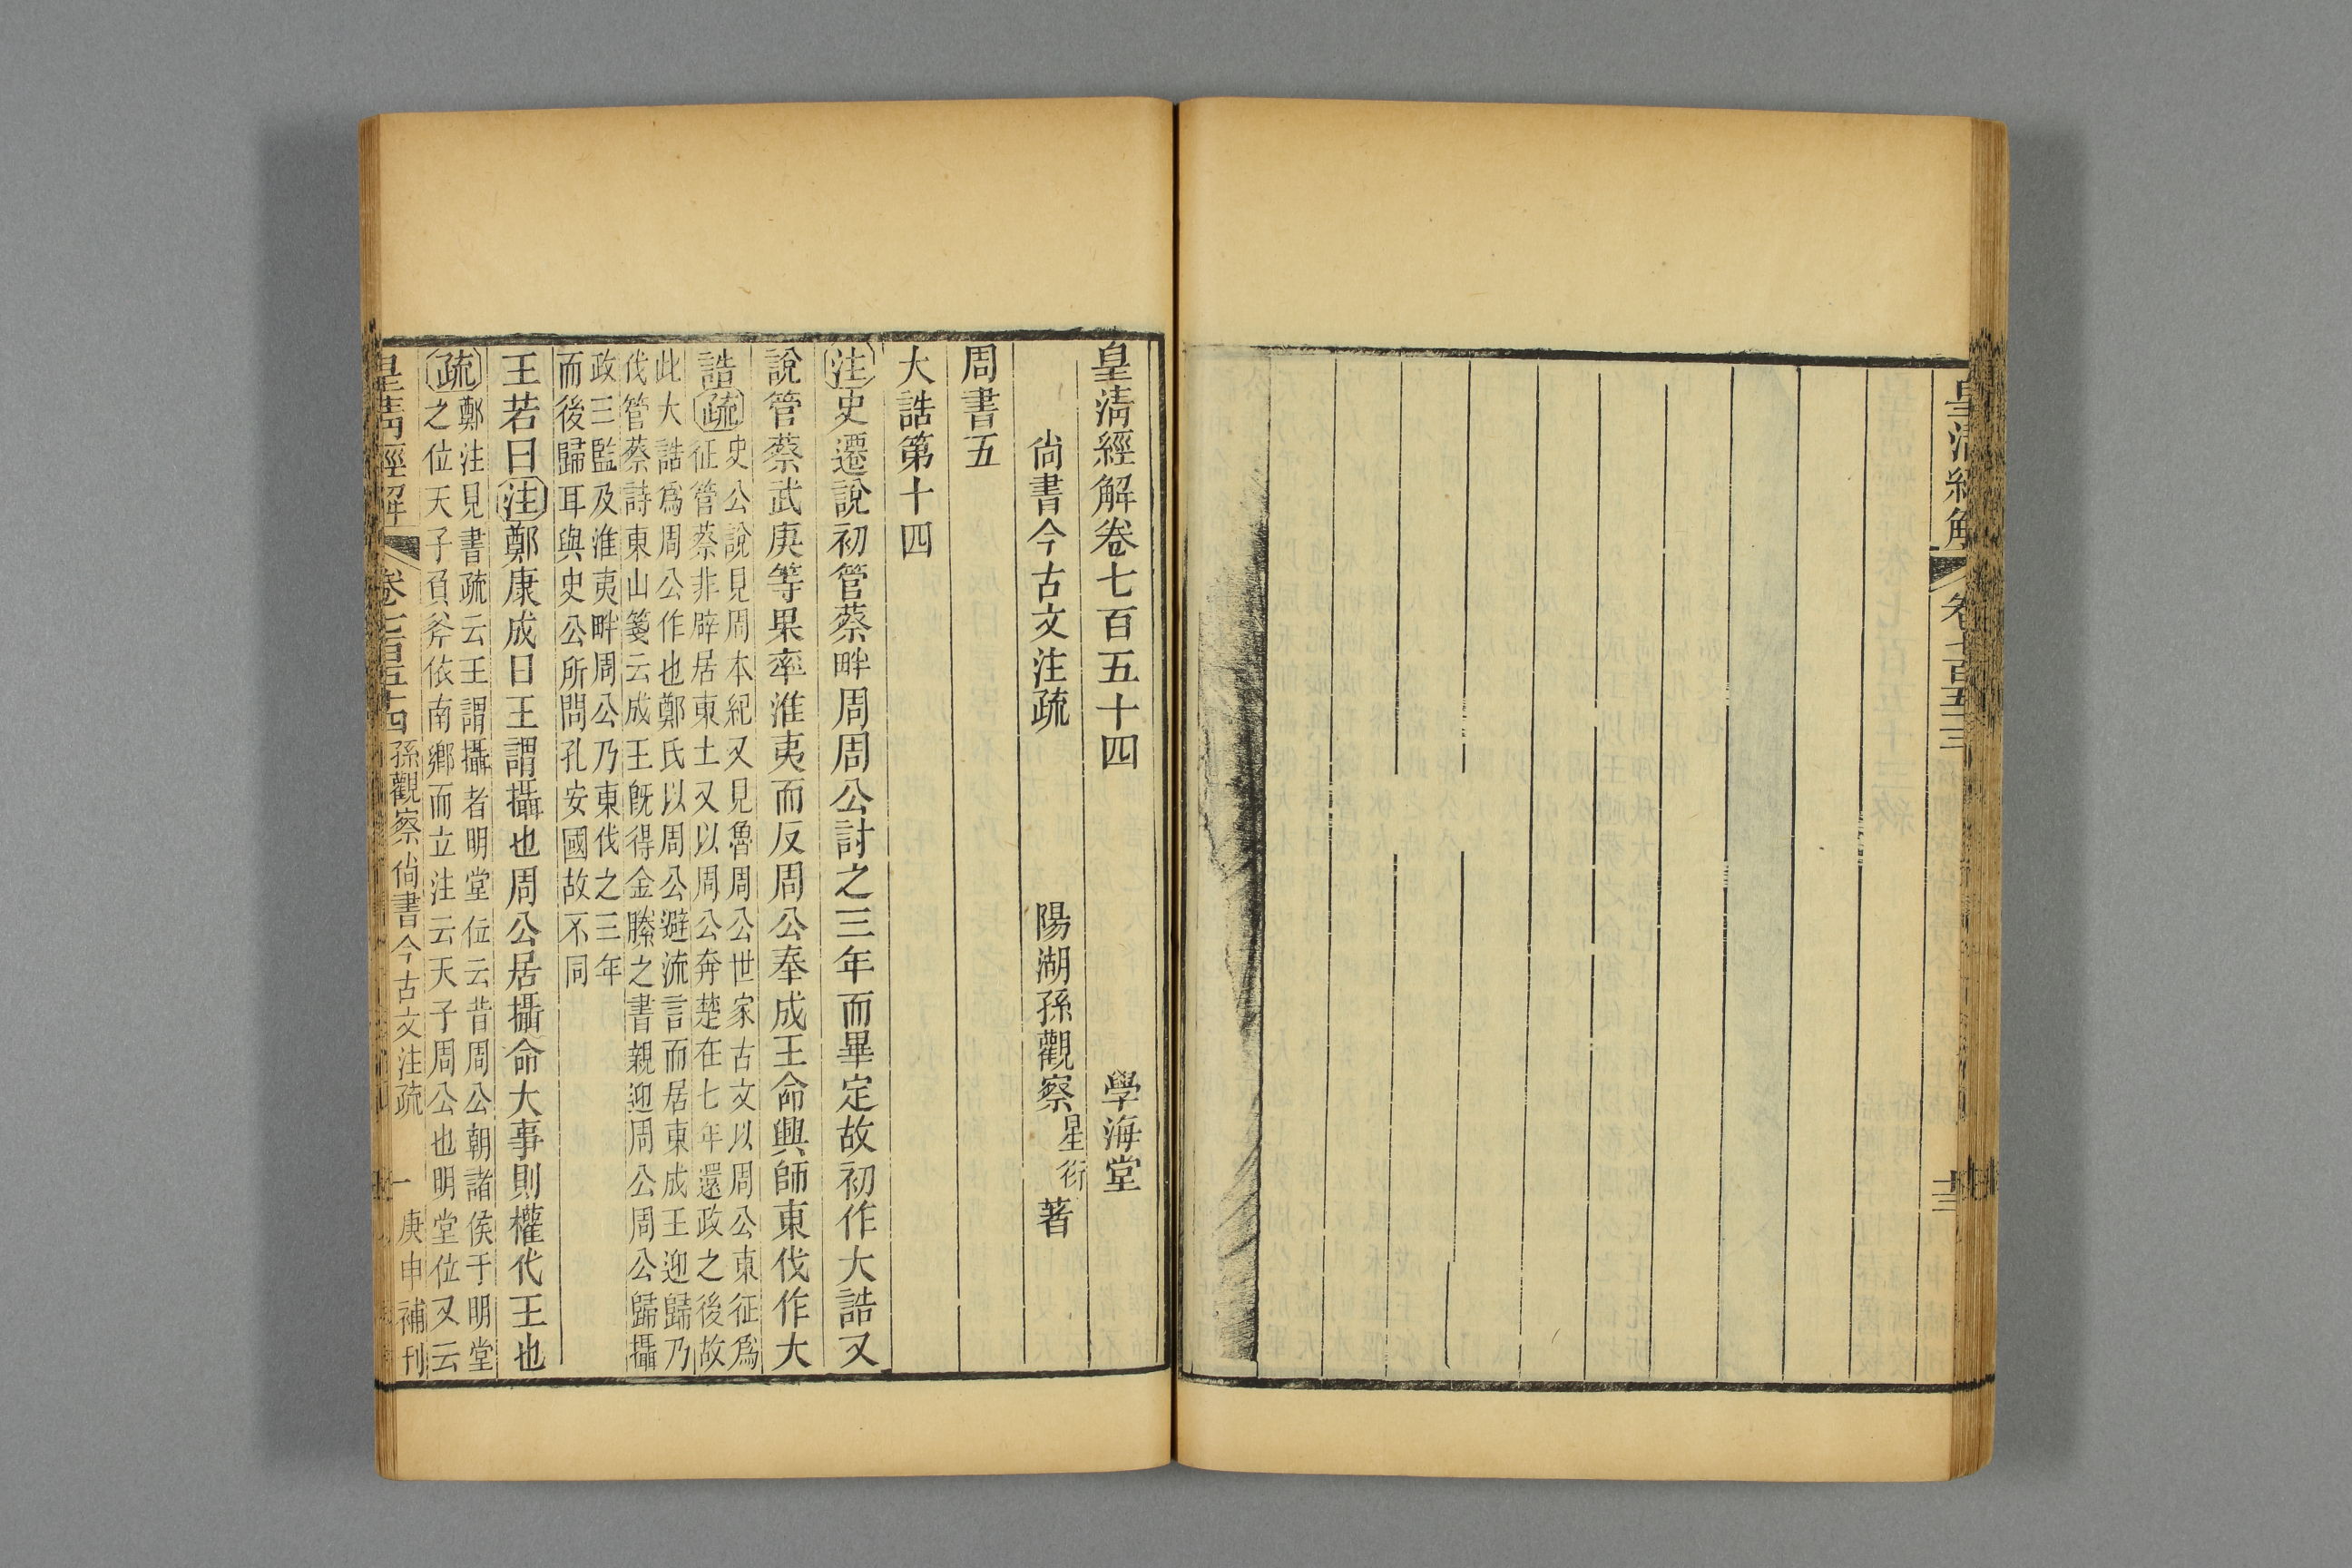 皇清經解
卷七百五十三
十三
皇清經解卷七百五十四
學海堂
尙書今古文注疏
陽湖孫觀察星衍著
周書五
大誥第十四
注史遷說初管蔡畔周周公討之三年而畢定故初作大誥又
說管蔡武庚等果率淮夷而反周公奉成王命興師東伐作大
誥疏史公說見周本紀又見魯周公世家古文以周公東征爲
征管蔡非辟居東土又以周公奔楚在七年還政之後故
此大誥爲周公作也鄭氏以周公避流言而居東成王迎歸乃
伐管蔡詩東山箋云成王旣得金縢之書親迎周公周公歸攝
政三監及淮夷畔周公乃東伐之三年
而後歸耳與史公所問孔安國故不同
王若曰注鄭康成曰王謂攝也周公居攝命大事則權代王也
疏鄭注見書疏云王謂攝者明堂位云昔周公朝諸侯于明堂
之位天子負斧依南鄉而立注云天子周公也明堂位又云
皇淸經解
卷七百五十四
孫觀察尙書今古文注疏
一
庚申補刊